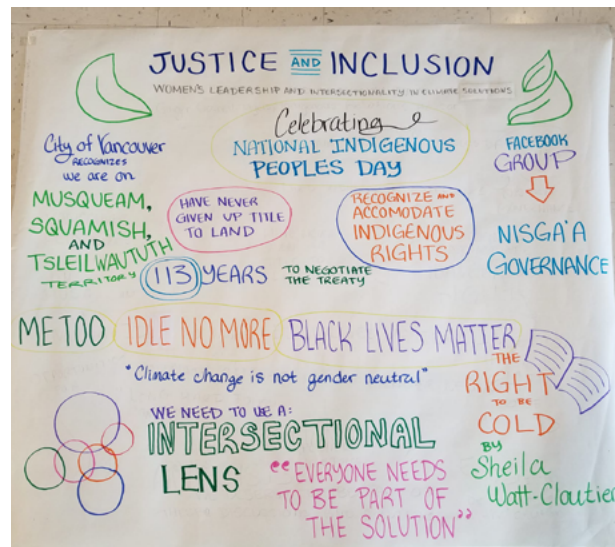 JUSTICE AND INCLUSION
WOMEN'S LEADERSHIP AND INTERSECTIONALITY IN CLIMATE SOLUTIONS
Celebrating
NATIONAL INDIGENOUS
PEOPLES DAY
City of Vancouver
RECOGNIZES
we are on
MUSQUEAM,
SQUAMISH,
AND
TSLEILWAUTUTH
TERRITORY
HAVE NEVER
GIVEN UP TITLE
TO LAND
RECOGNIZE AND
ACCOMODATE
INDIGENOUS
RIGHTS
FACEBOOK
GROUP
NISGA'A
GOVERNANCE
113 YEARS
TO NEGOTIATE
THE TREATY
ME TOO IDLE NO MORE BLACK LIVES MATTER
"Climate change is not gender neutral"
THE
RIGHT
TO BE
COLD
BY
Sheila
Watt-Cloutier
WE NEED TO USE A:
INTERSECTIONAL
LENS
"EVERYONE NEEDS
TO BE PART OF
THE SOLUTION"